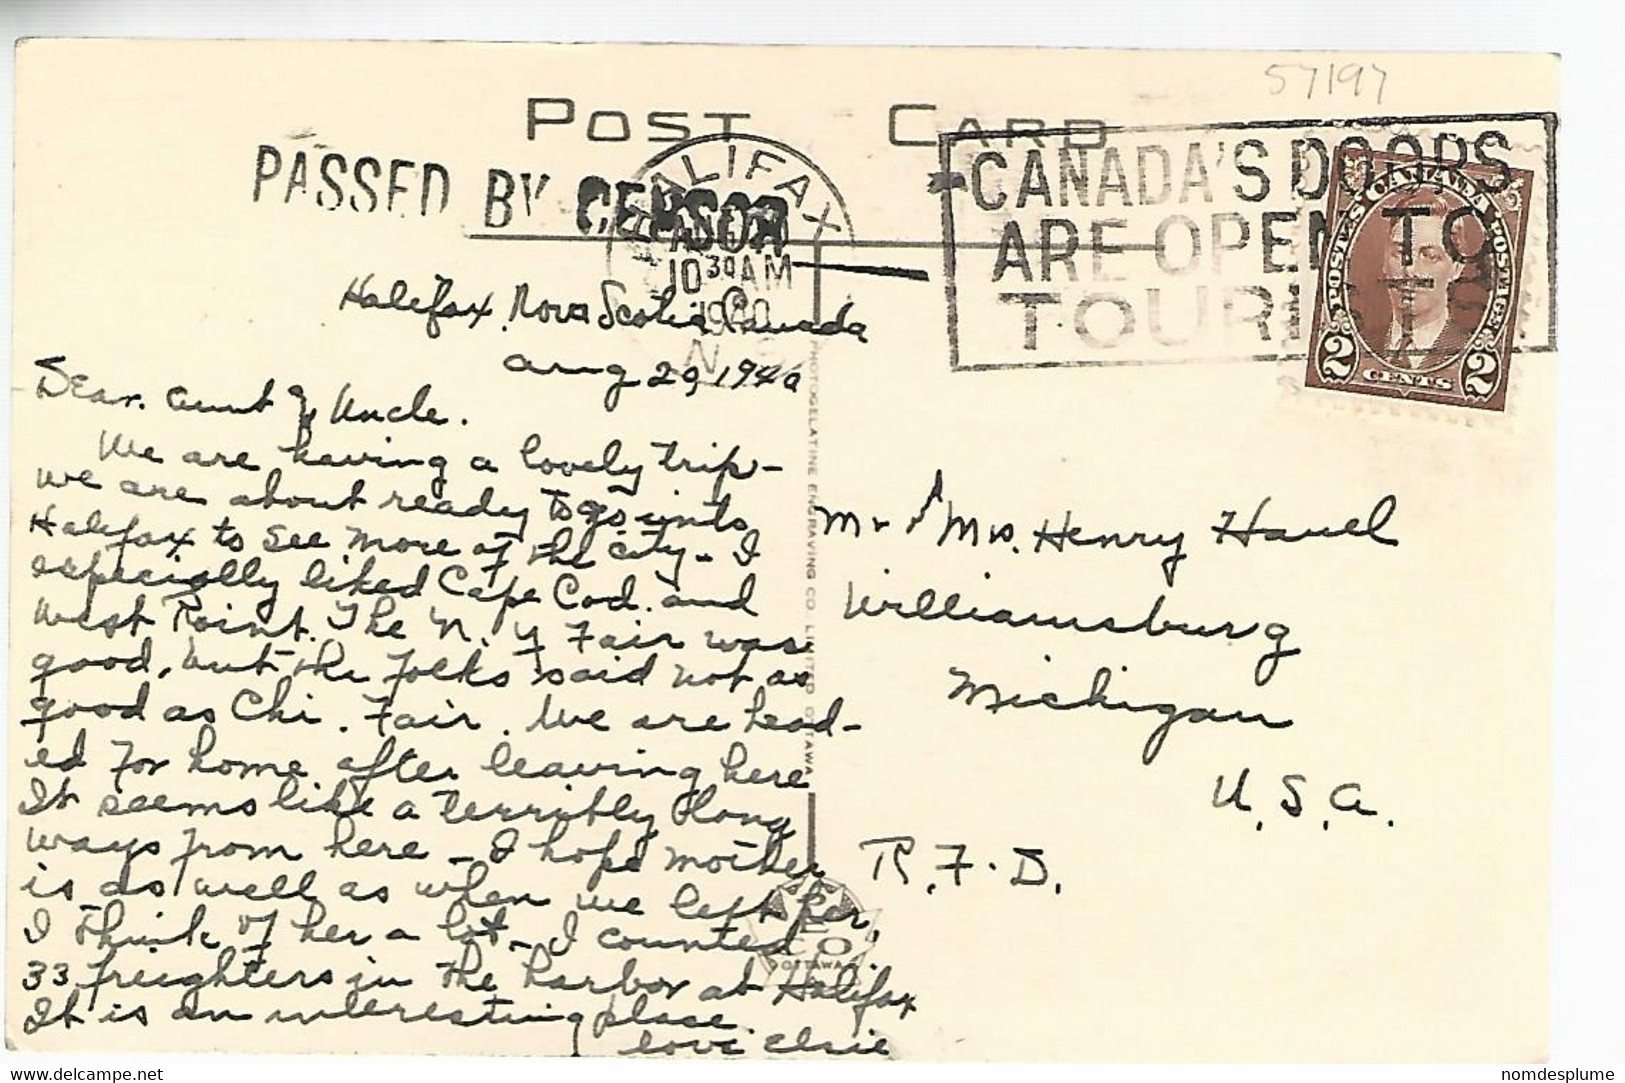 57197
POST CARD
PASSED BY CENSOR
HALIFAX
10 30 AM
1940
N.S.
CANADA'S DOORS
ARE OPEN TO
TOURISTS
CANADA
POSTES POSTAGE
2 CENTS 2
Halifax, Nova Scotia Canada
Aug 20, 1940
Dear Aunt & Uncle.
We are having a lovely trip-
we are about ready to go into
Halifax to see more of the city - I
especially liked Cape Cod. and
West Point. The N. Y Fair was
good, but the folks said not as
good as Chi. Fair. We are head-
ed for home after leaving here
It seems like a terribly long
ways from here - I hope mother
is as well as when we left her.
I think of her a lot - I counted
33 freighters in the harbor at Halifax
It is an interesting place.
love Elsie
PHOTOGELATINE ENGRAVING CO. LIMITED OTTAWA
PECO
OTTAWA
Mr & Mrs. Henry Hauel
Williamsburg
Michigan
U.S.A.
R.F.D.
www.delcampe.net
nomdesplume